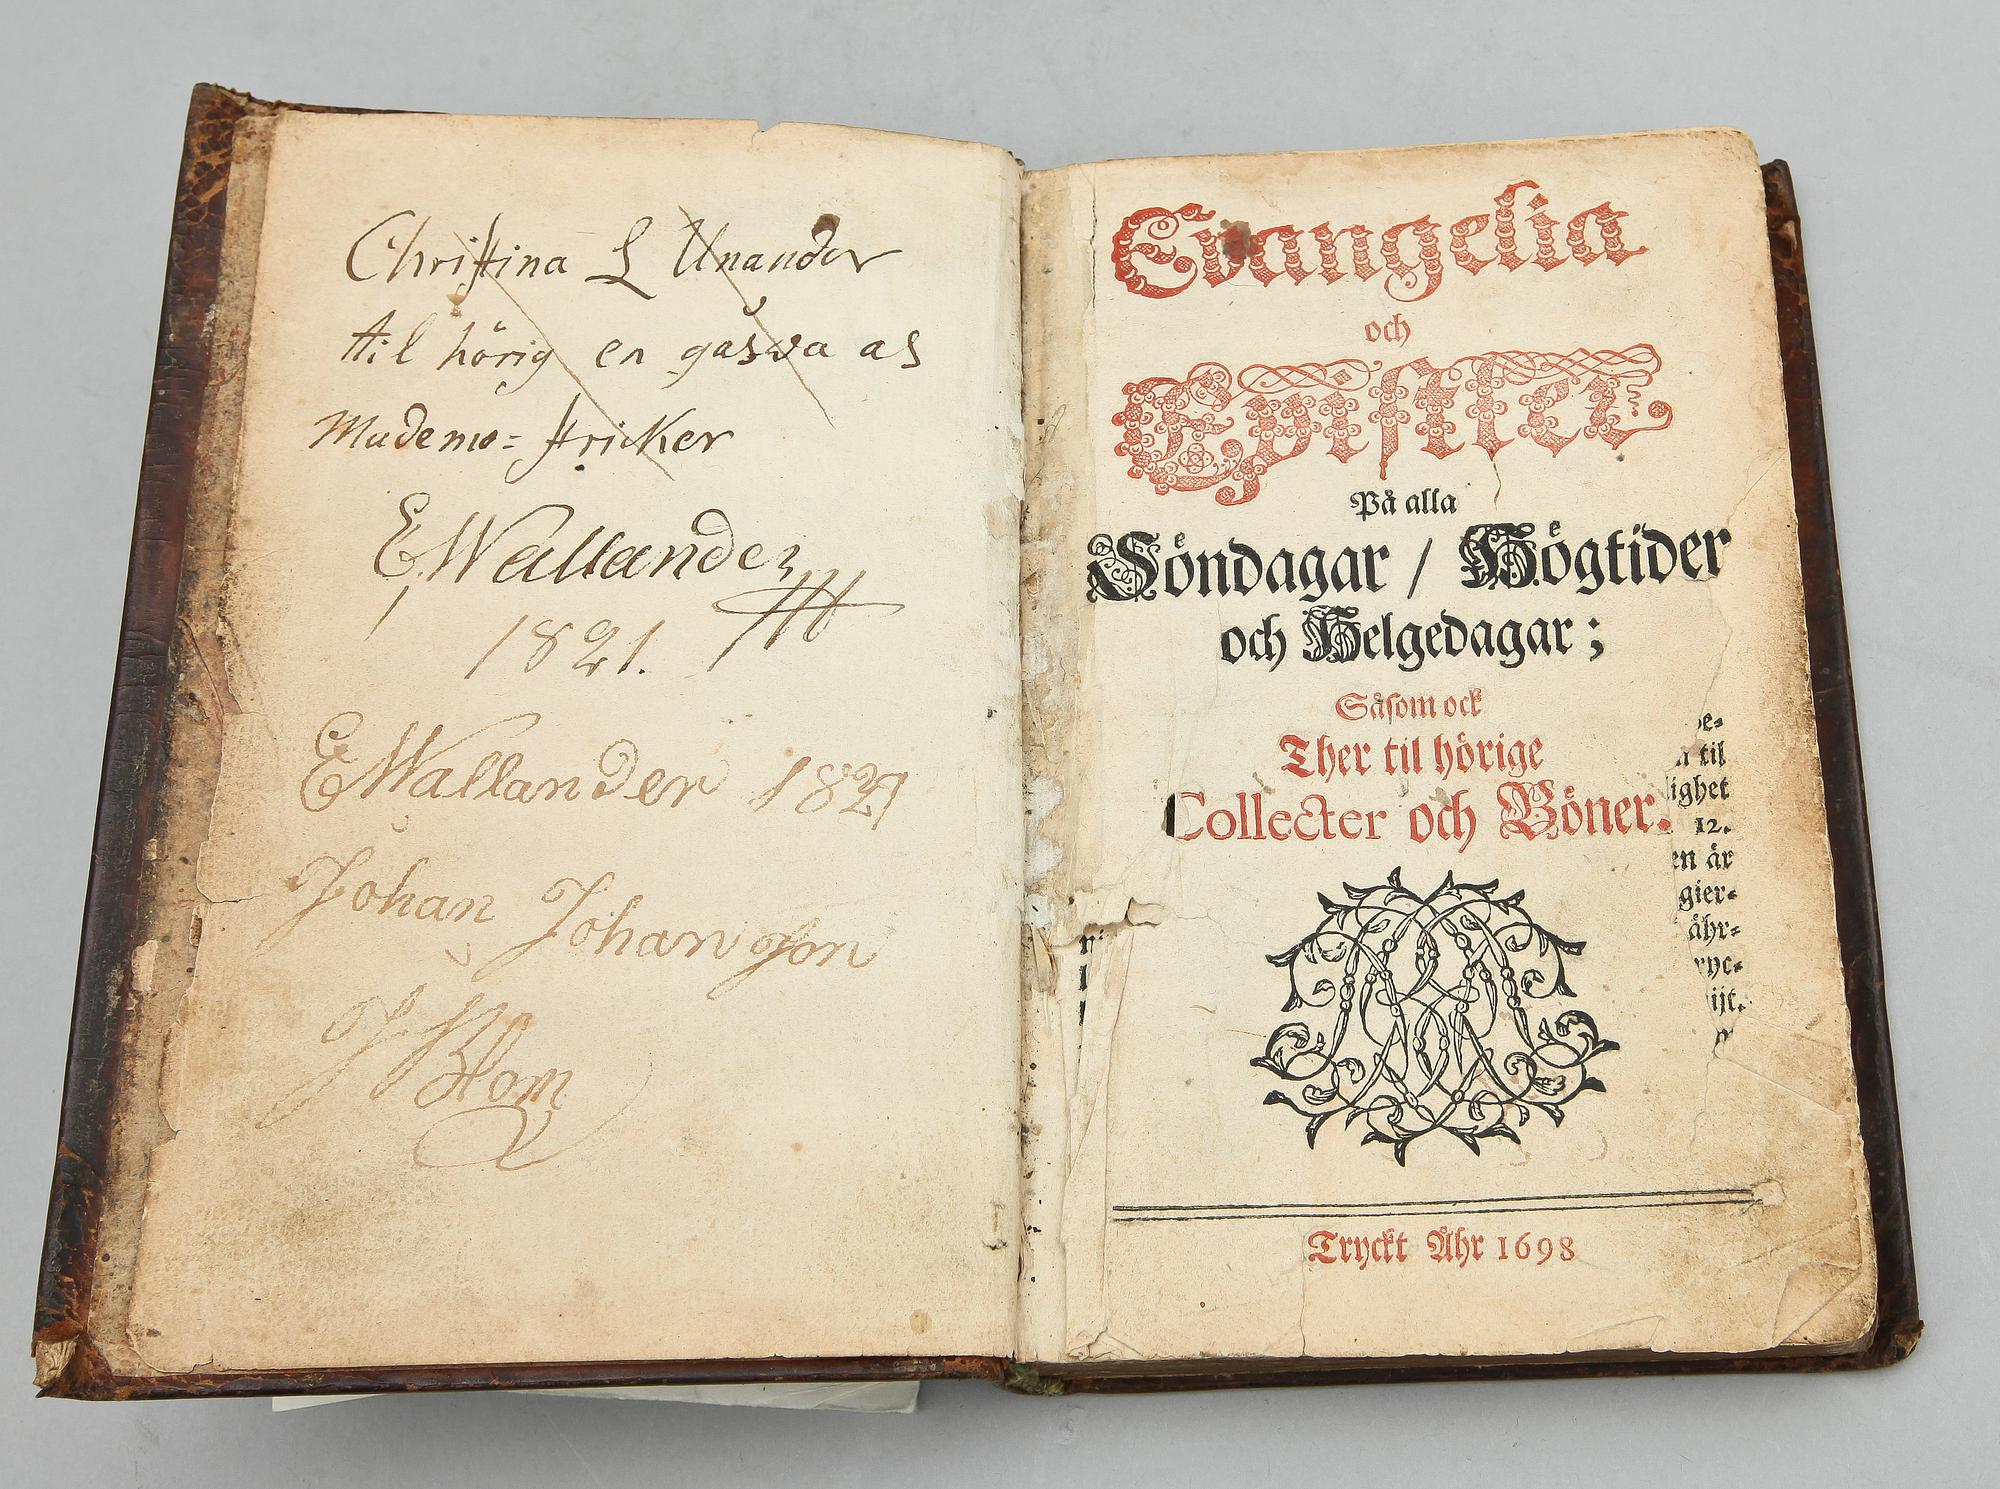 Christina L Unander
til hörig en gåsva as
Mademo= fricker
E Wallander
1821.
E Wallander 1821
Johan Johanson
J Blom
Evangelia
och
Epistler
På alla
Söndagar / Högtider
och Helgedagar ;
Såsom ock
Ther til hörige
Collecter och Böner.
til
ighet
12.
en är
gier-
åhr-
ryc-
ijt.
Tryckt Åhr 1698